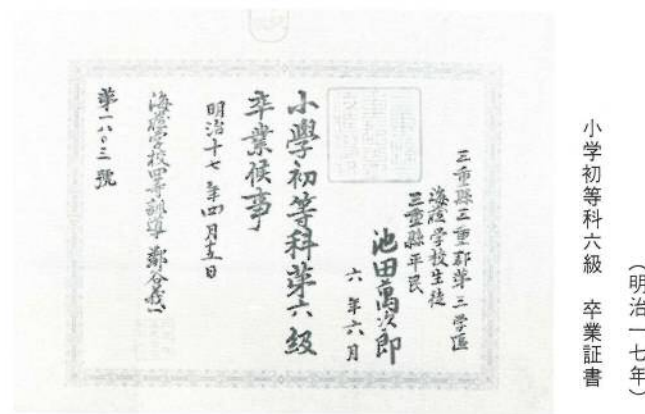 小学初等科六級　卒業証書
（明治一七年）
三重縣三重郡第三学區
海蔵学校生徒
三重縣平民
池田萬次郎
六年六月
小學初等科第六級
卒業候事
明治十七年四月十五日
海蔵学校四等訓導
第一八〇三號